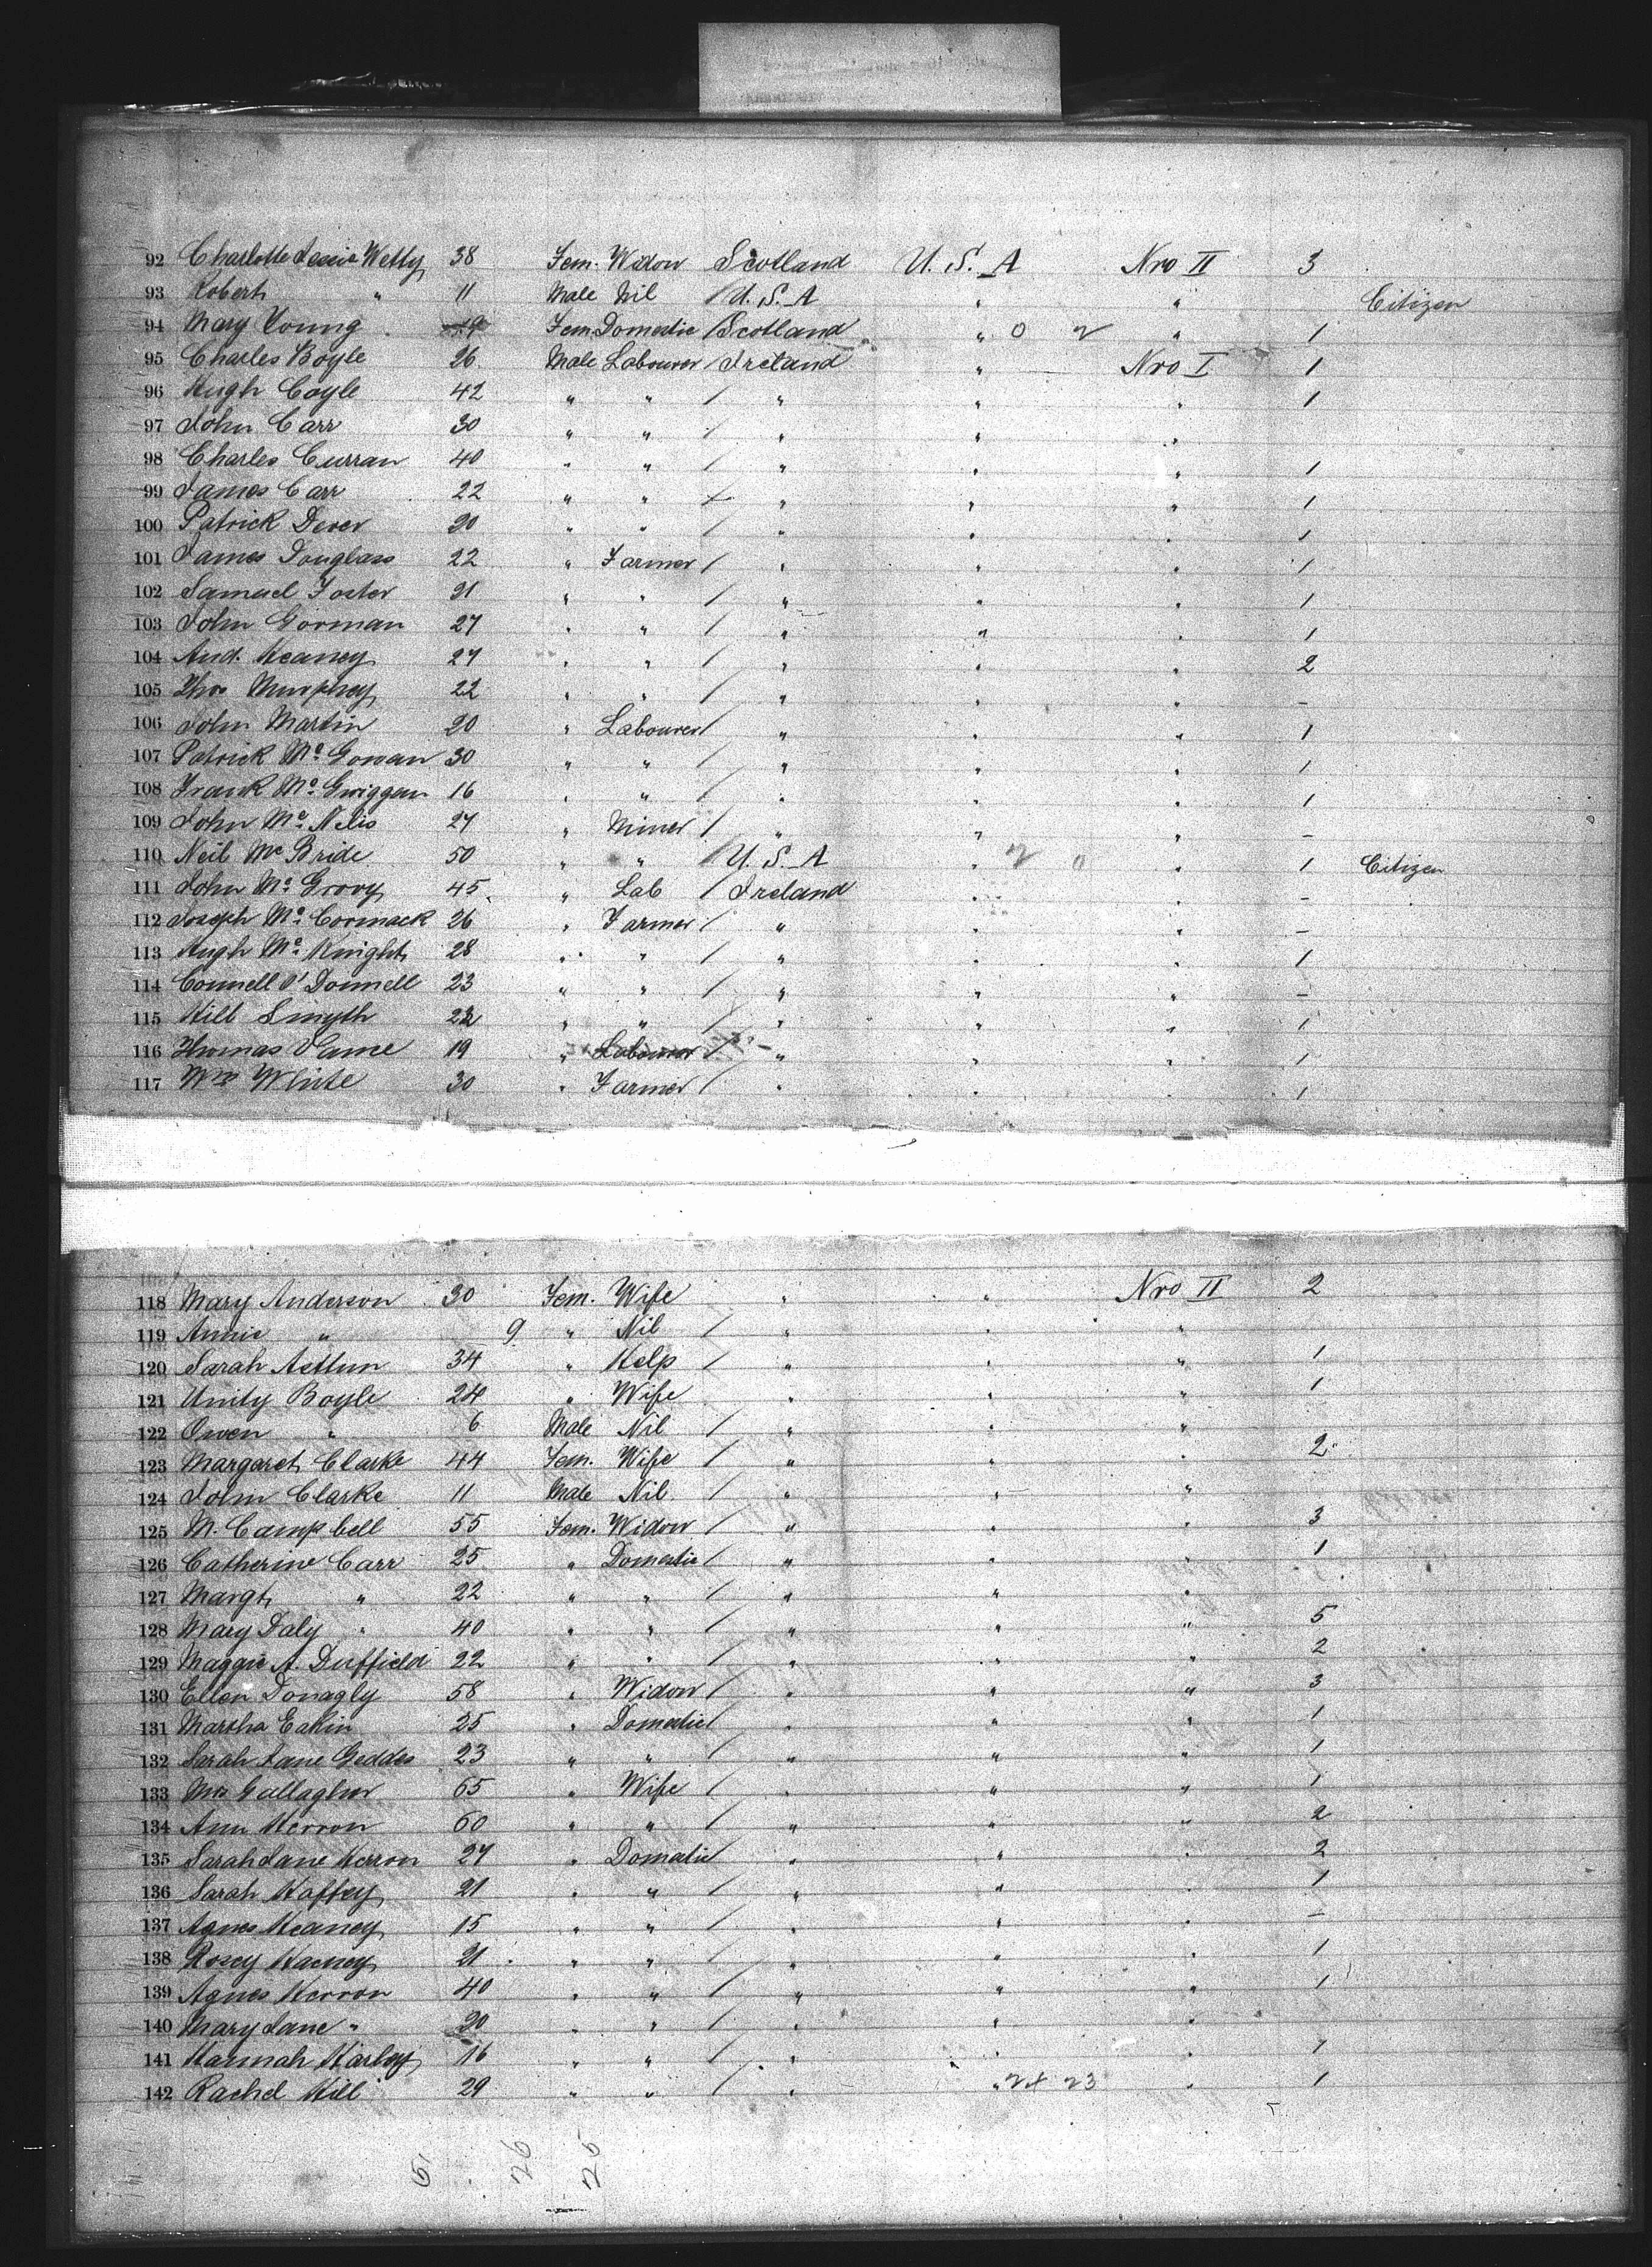 92 Charlotte Jessie Welly 38 Fem. Widow Scotland U.S.A Nro II 3
93 Robert " 11 Male Nil / U.S.A " " Citizen
94 Mary Young 19 Fem. Domestic / Scotland " 0 2 " 1
95 Charles Boyle 26 Male Labourer / Ireland " Nro I 1
96 Hugh Coyle 42 " " / " " " 1
97 John Carr 30 " " / " " "
98 Charles Curran 40 " " / " " " 1
99 James Carr 22 " " / " " " 1
100 Patrick Dever 20 " " / " " " 1
101 James Douglass 22 " Farmer / " " " 1
102 Samuel Foster 21 " " / " " " 1
103 John Gorman 27 " " / " " " 1
104 And. Keaney 27 " " / " " " 2
105 Thos Murphey 22 " " / " " " -
106 John Martin 20 " Labourer / " " " 1
107 Patrick Mc Gowan 30 " " / " " " 1
108 Frank Mc Gwiggan 16 " " / " " " 1
109 John Mc Nelis 27 " Miner / " " " -
110 Neil Mc Bride 50 " " / U.S.A " 2 0 " 1 Citizen
111 John Mc Grory 45 " Lab / Ireland " " -
112 Joseph Mc Cormack 26 " Farmer / " " " -
113 Hugh Mc Knight 28 " " / " " " 1
114 Connell O'Donnell 23 " " / " " " -
115 Hill Smyth 22 " " / " " " 1
116 Thomas 19 " Labourer / " " " 1
117 Wm White 30 " Farmer / " " " 1
118 Mary Anderson 30 Fem. Wife " " Nro II 2
119 Annie " 9 " Nil / " " "
120 Sarah 34 " Help / " " " 1
121 Unity Boyle 24 " Wife " " " 1
122 Owen " 6 Male Nil / " " "
123 Margaret Clarke 44 Fem. Wife / " " " 2
124 John Clarke 11 Male Nil / " " "
125 M. Campbell 55 Fem. Widow / " " " 3
126 Catherine Carr 25 " Domestic / " " " 1
127 Margt " 22 " " / " " "
128 Mary Daly " 40 " " / " " " 5
129 Maggie A. Duffield 22 " " / " " " 2
130 Ellen Donagly 58 " Widow / " " " 3
131 Martha Eakin 25 " Domestic / " " " 1
132 Sarah Jane Geddes 23 " " / " " " 1
133 Mrs Gallagher 65 " Wife / " " " 1
134 Ann Herron 60 " " / " " " 2
135 Sarah Jane Herron 27 " Domestic / " " " 2
136 Sarah Haffey 21 " " / " " " 1
137 Agnes Heaney 15 " " / " " " -
138 Rosey Heaney 21 " " / " " " 1
139 Agnes Herron 40 " " / " " " 1
140 Mary Jane " 20 " " / " " "
141 Hannah Harley 16 " " / " " " 1
142 Rachel Hill 29 " " / " " 24 23 " 1
51 26 25